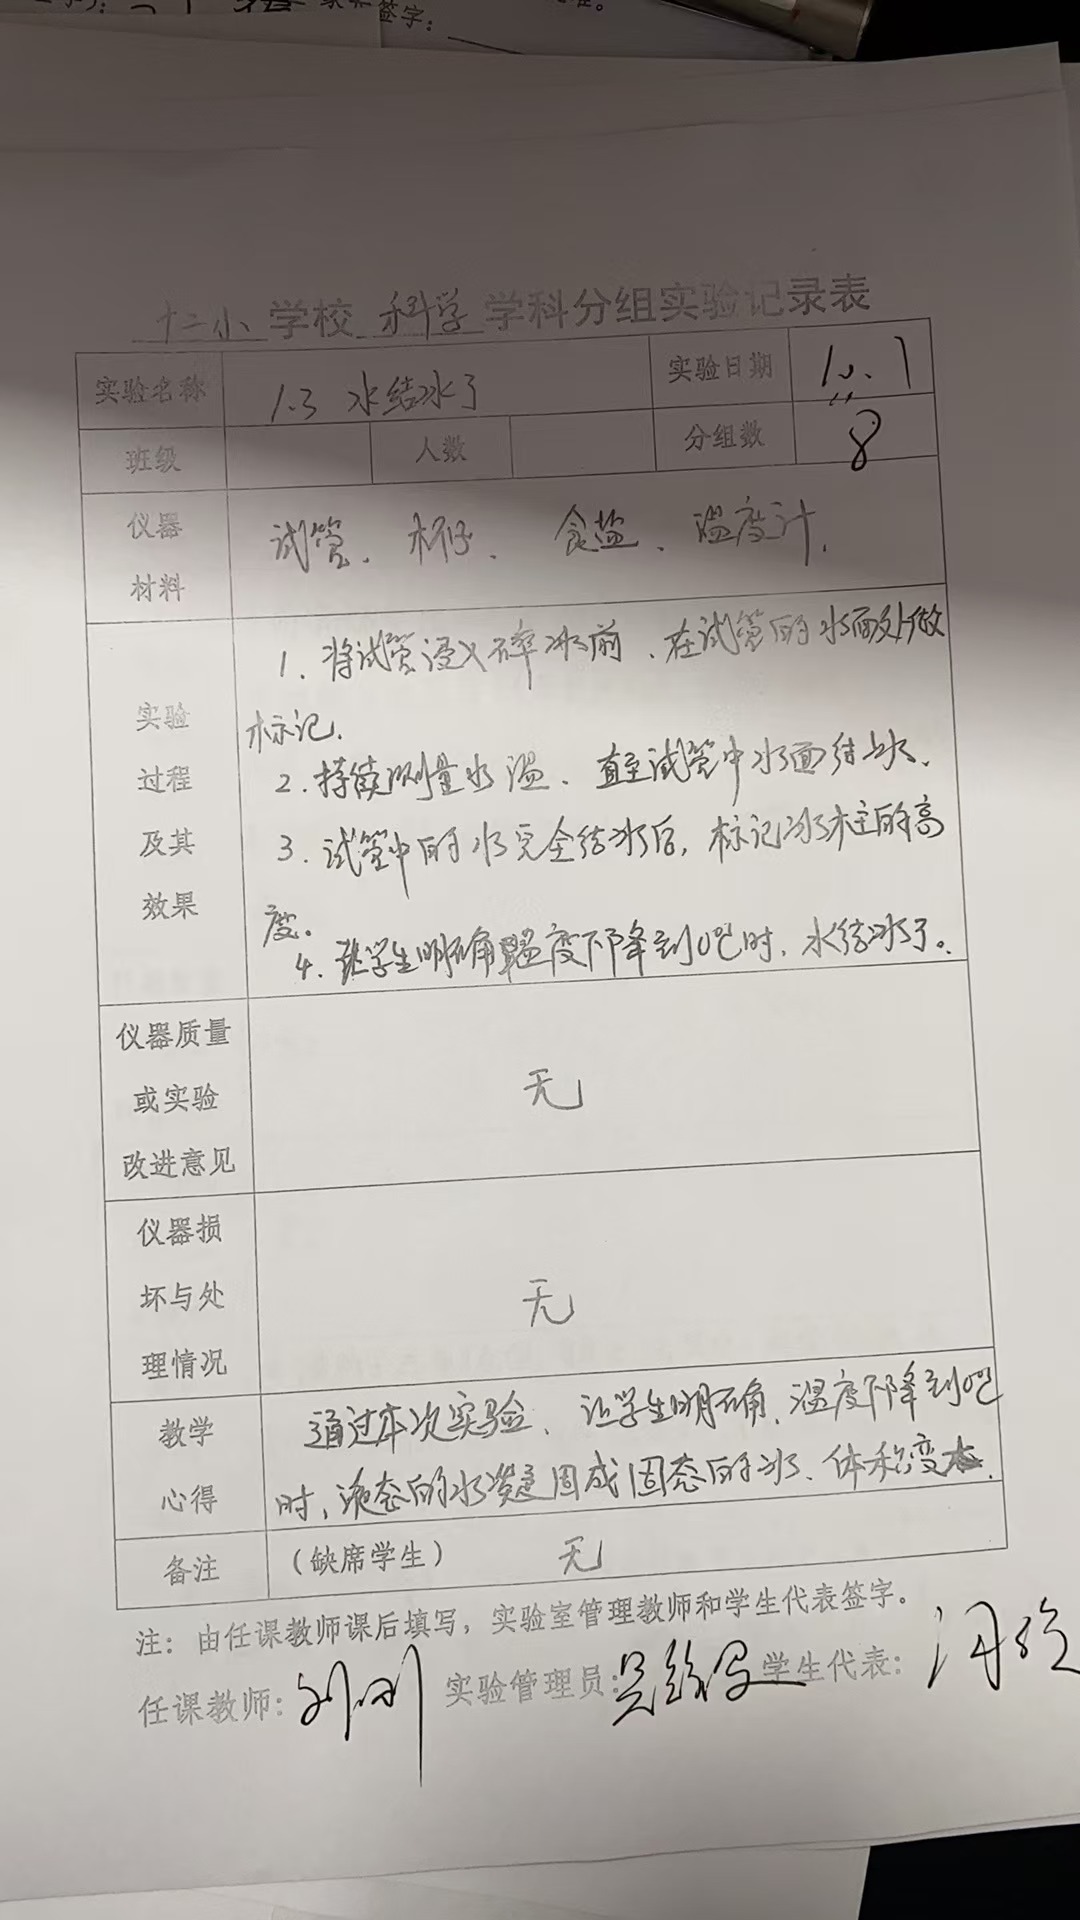 签字:
十二小 学校 科学 学科分组实验记录表
实验名称 1.3 水结冰了 实验日期
班级 人数 分组数 8
仪器材料 试管、杯子、食盐、温度计.
实验过程及其效果
1. 将试管浸入碎冰前、在试管的水面处做
标记.
2. 持续测量水温、直至试管中水面结冰.
3. 试管中的水完全结冰后, 标记冰柱的高
度。
4. 让学生明确温度下降到0℃时, 水结冰了。
仪器质量或实验改进意见 无
仪器损坏与处理情况 无
教学心得 通过本次实验、让学生明确、温度下降到0℃
时, 液态的水凝固成固态的冰、体积变大.
备注 (缺席学生) 无
注: 由任课教师课后填写, 实验室管理教师和学生代表签字。
任课教师: 实验管理员: 学生代表: